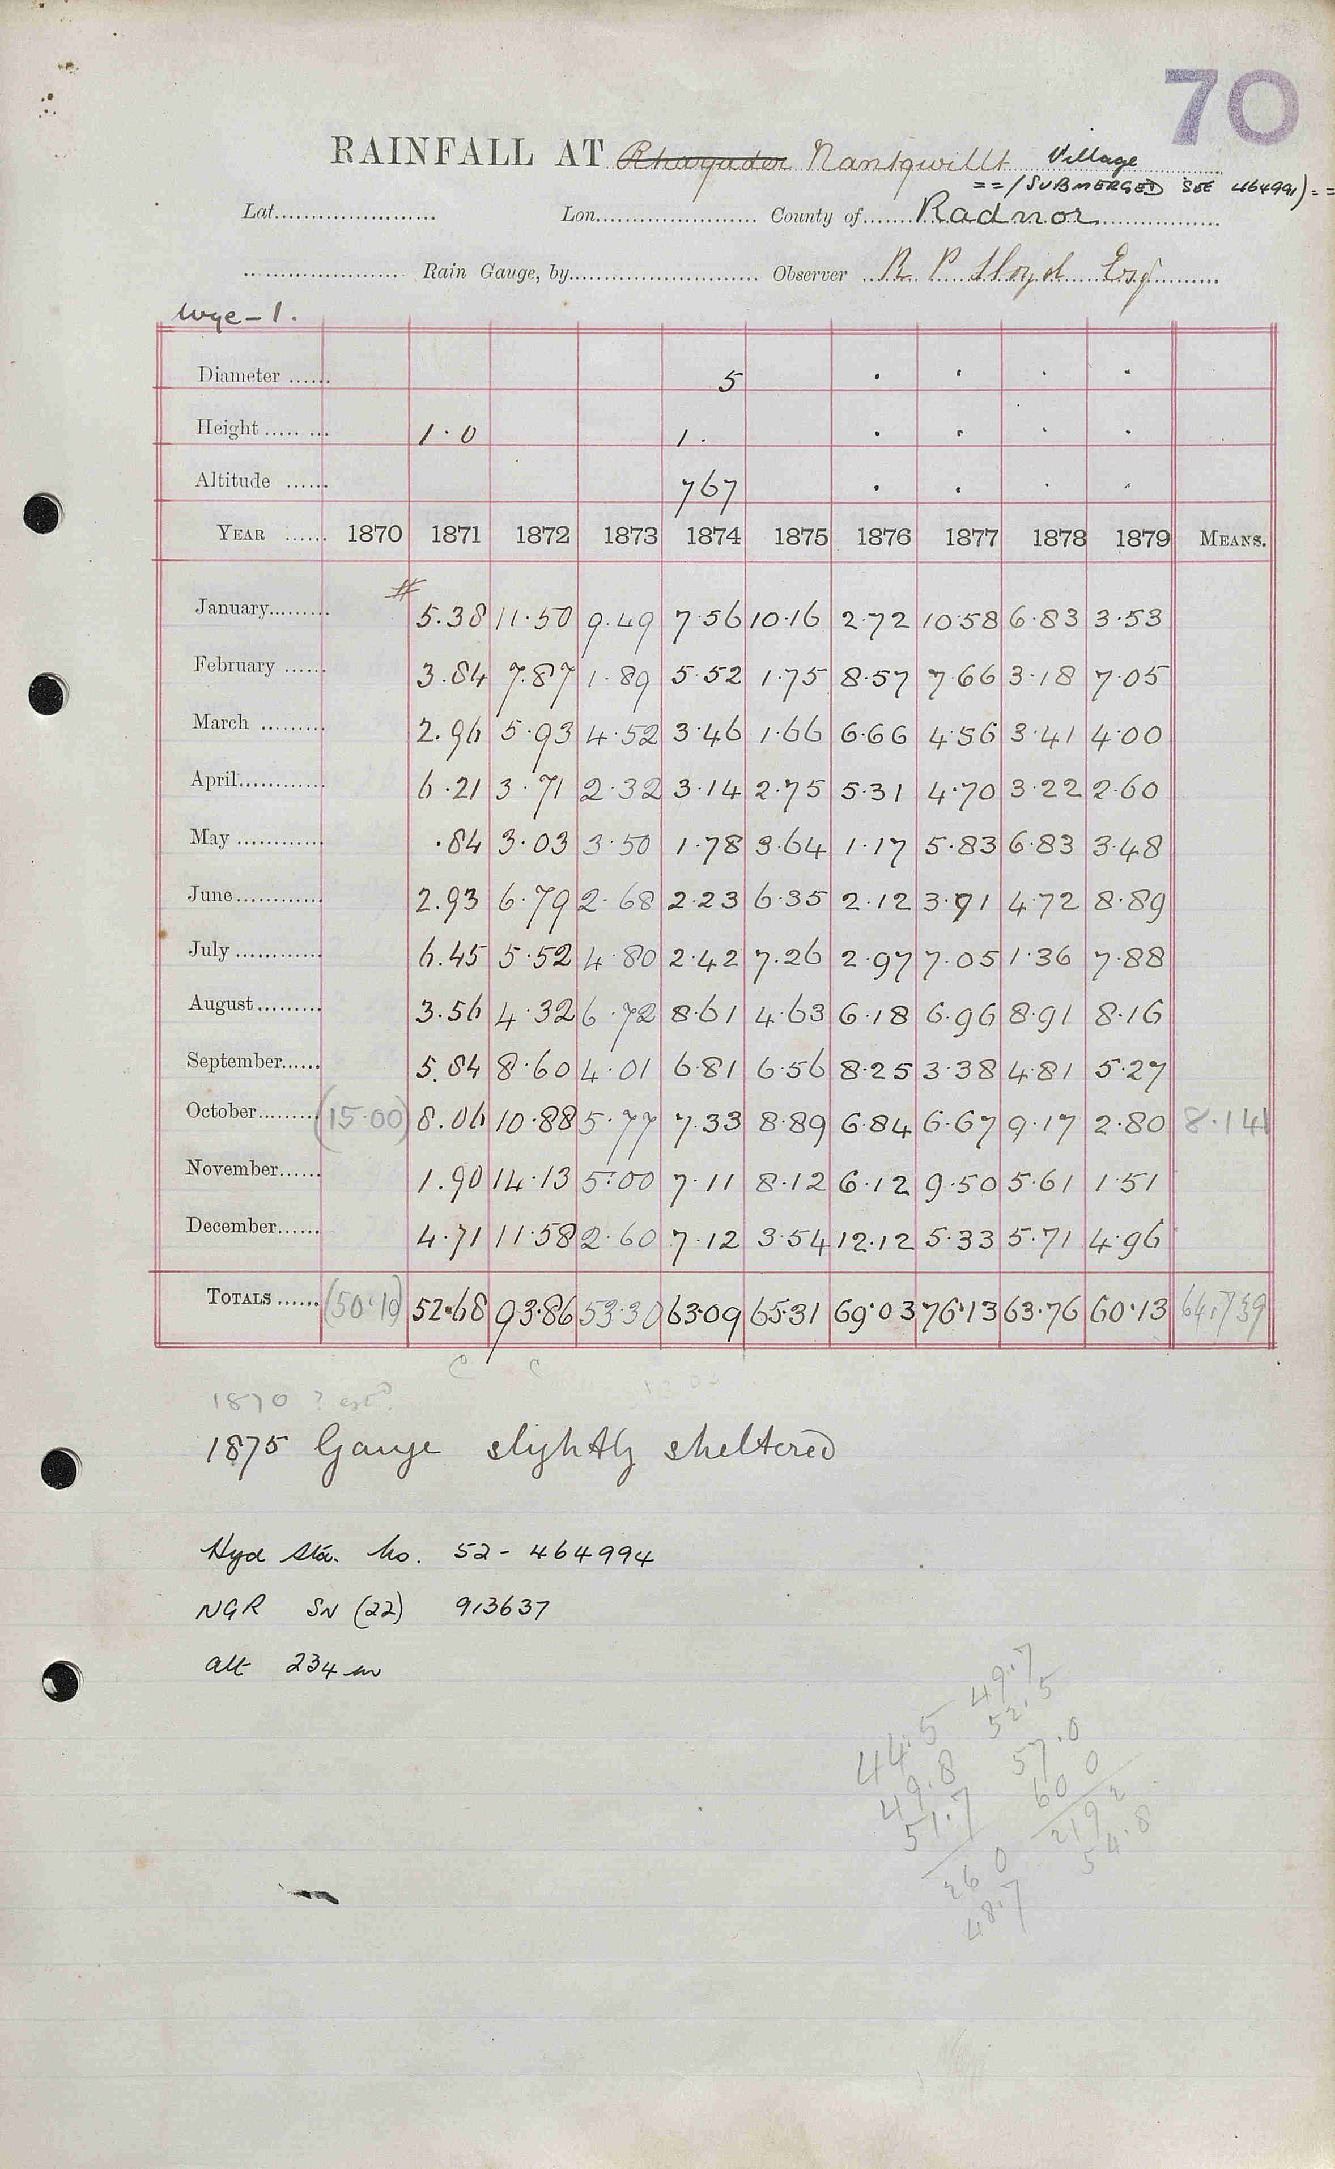 70
RAINFALL AT Rhayader Nantgwillt Village
== (SUBMERGED SEE 464991) ==
Lat. Lon. County of Radnor
Rain Gauge, by Observer R P Lloyd Esq
Wye - 1.
Diameter 5 · · · ·
Height 1·0 1· · · · ·
Altitude 767 · · · ·
YEAR 1870 1871 1872 1873 1874 1875 1876 1877 1878 1879 MEANS.
#
January 5.38 11·50 9·49 7·56 10·16 2·72 10·58 6·83 3·53
February 3.84 7·87 1·89 5·52 1·75 8·57 7·66 3·18 7·05
March 2.96 5·93 4·52 3·46 1·66 6·66 4·56 3·41 4·00
April 6·21 3·71 2·32 3·14 2·75 5·31 4·70 3·22 2·60
May ·84 3·03 3·50 1·78 3·64 1·17 5·83 6·83 3·48
June 2.93 6·79 2·68 2·23 6·35 2·12 3·91 4·72 8·89
July 6.45 5·52 4·80 2·42 7·26 2·97 7·05 1·36 7·88
August 3.56 4·32 6·72 8·61 4·63 6·18 6·96 8·91 8·16
September 5.84 8·60 4·01 6·81 6·56 8·25 3·38 4·81 5·27
October (15·00) 8.06 10·88 5·77 7·33 8·89 6·84 6·67 9·17 2·80 8·141
November 1.90 14·13 5·00 7·11 8·12 6·12 9·50 5·61 1·51
December 4.71 11·58 2·60 7·12 3·54 12·12 5·33 5·71 4·96
TOTALS (50·10) 52·68 93·86 53·30 63·09 65·31 69·03 76·13 63·76 60·13 64·739
C C
1870 ? estd.
1875 Gauge slightly sheltered
Hyd Sta. No. 52 - 464994
NGR SN (22) 913637
alt 234 m
44.5
49.8
51.7
26 0
48.7
49.7
52.5
57.0
60 0
219 2
54.8